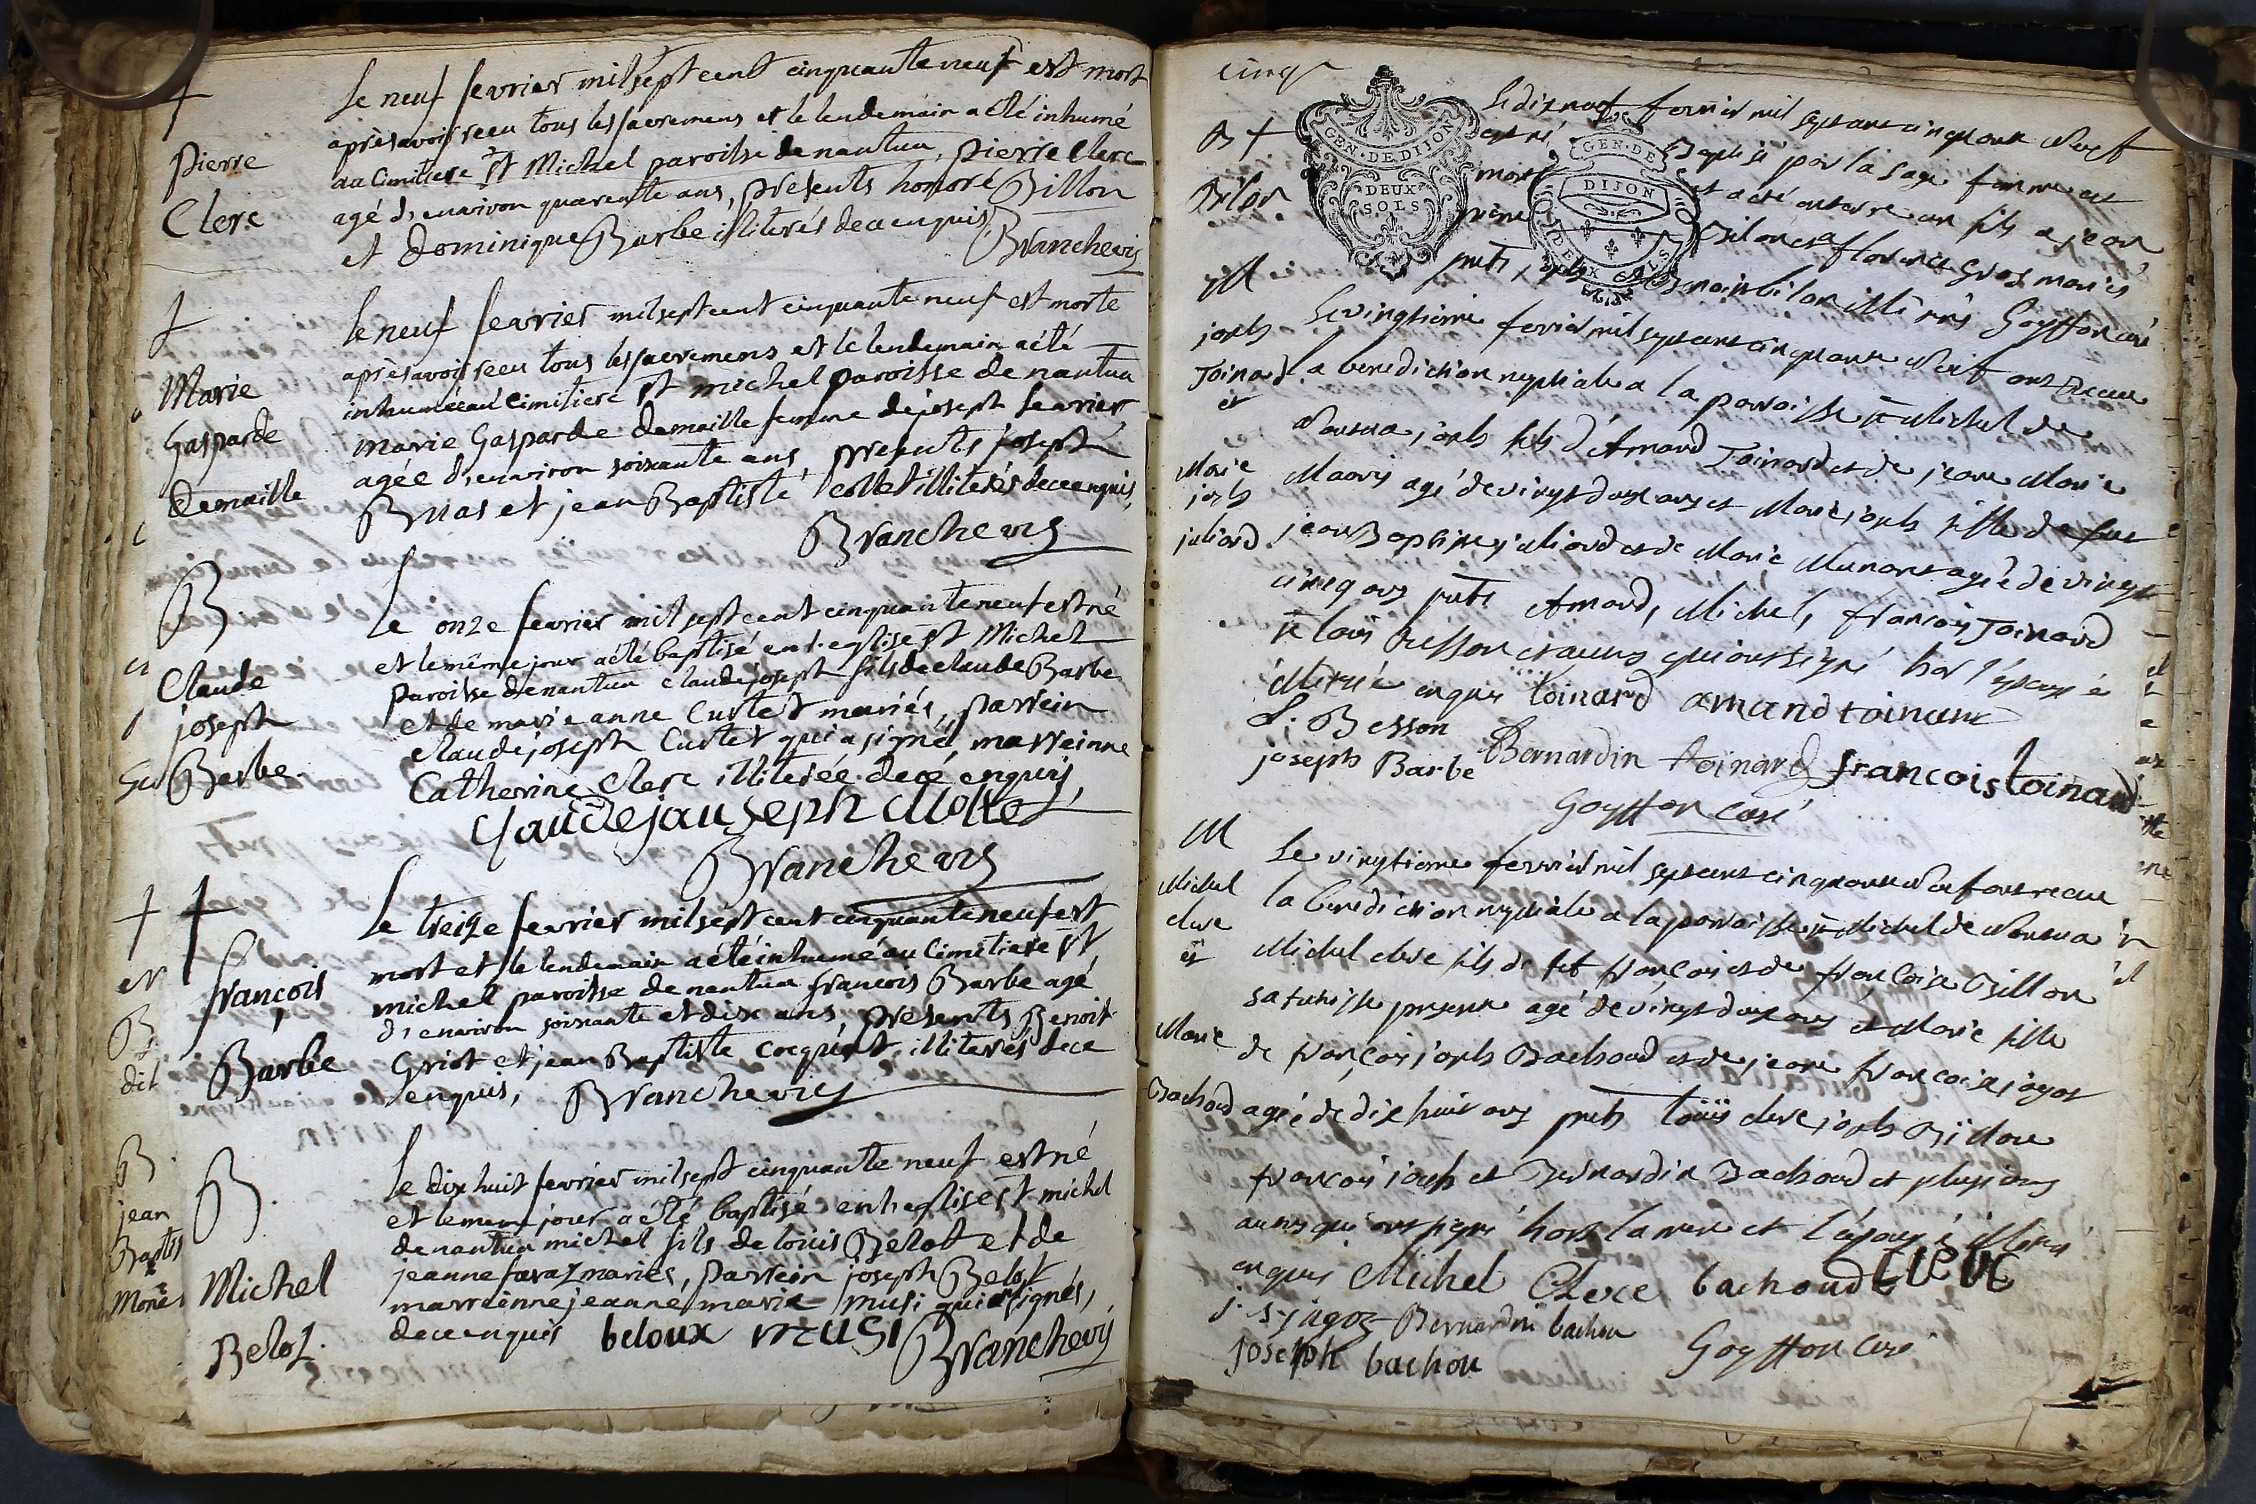 †
Pierre
Clerc
le neuf fevrier mil sept cent cinquante neuf est mort
après avoir reçu tous les sacremens et le lendemain a été inhumé
au Cimitiere St Michel paroisse de nantua, pierre Clerc
agé d'environ quarente ans, présents honoré Billon
et Dominique Barbe illiterés de ce enquis, Branchevis
†
Marie
Gasparde
Demaille
le neuf fevrier mil sept cent cinquante neuf est morte
après avoir reçu tous les sacremens et le lendemain a été
inhumée au cimitiere St michel paroisse de nantua
marie Gasparde demaille femme de joseph fevrier,
agée d'environ soixante ans, présents joseph
Bruas et jean Baptiste Collet illiterés de ce enquis,
Branchevis
B
Claude
joseph
Barbe
le onze fevrier mil sept cent cinquante neuf est né
et le même jour a été baptisé en l'eglise St Michel
paroisse de nantua claude joseph fils de claude Barbe
et de marie anne Curtet mariés, parrein
claude joseph Curtet qui a signé, marreinne
Catherine Clerc illiterée de ce enquis,
Branchevis
† †
françois
Barbe
le treize fevrier mil sept cent cinquante neuf est
mort et le lendemain a été inhumé au Cimitiere St
michel paroisse de nantua françois Barbe agé
d'environ soixante et dix ans, présents Benoit
Griot et jean Baptiste Cocquet, illiterés de ce
enquis, Branchevis
B
Michel
Belot.
le dix huit fevrier mil sept cinquante neuf est né
et le meme jour a été baptisé en l'eglise St michel
de nantua michel fils de louis Belot et de
jeanne favaz mariés, parrein joseph Belot
marreinne jeanne marie musi qui ont signés,
de ce enquis beloux musi Branchevis
B
dit
B
jean
cinq
GEN. DE DIJON
DEUX
SOLS
GEN. DE
DIJON
DEUX SOLS
B †
Bilon
Le dix neuf fevrier mil sept cent cinquante neuf
est né, Baptisé par la sage femme et
mort et a été enterré un fils a jean
Bilon et a florence Gros mariés
illiterés Goyffon curé
M
joseph
Toinard
et
Marie
joseph
juliard
Le vingtieme fevrier mil sept cent cinquante Neuf ont Receu
la benediction nuptiale a la paroisse St Michel de
Nantua joseph fils d'Amand Toinard et de jeane Marie
agé de vingt deux ans et Marie joseph fille de feu
jean Baptiste juliard et de Marie Munant agée de vingt
cinq ans pnts Amand, Michel, françois Toinard
Besson et autres qui ont signé hor l'épouse
enquis toinard amand toinard
L. Besson Bernardin toinard francois toinard
joseph Barbe
Goyffon curé
M
Michel
clerc
et
Marie
Bachoud
Le vingtieme fevrier mil sept cent cinquante Neuf ont receu
la benediction nuptiale a la paroisse St Michel de Nantua
Michel clerc fils de françois et de françoise Billon
agé de vingt deux ans et Marie fille
de françois joseph Bachoud et de jeane françoise jagoz
agée de dix huit ans pnts louis clerc joseph Billon
françois joseph et Bernardin Bachoud et plusieurs
autres qui ont signé hors la mere et l'épouse
enquis Michel Clerc bachoud
Bernardin bachou
joseph bachou Goyffon curé